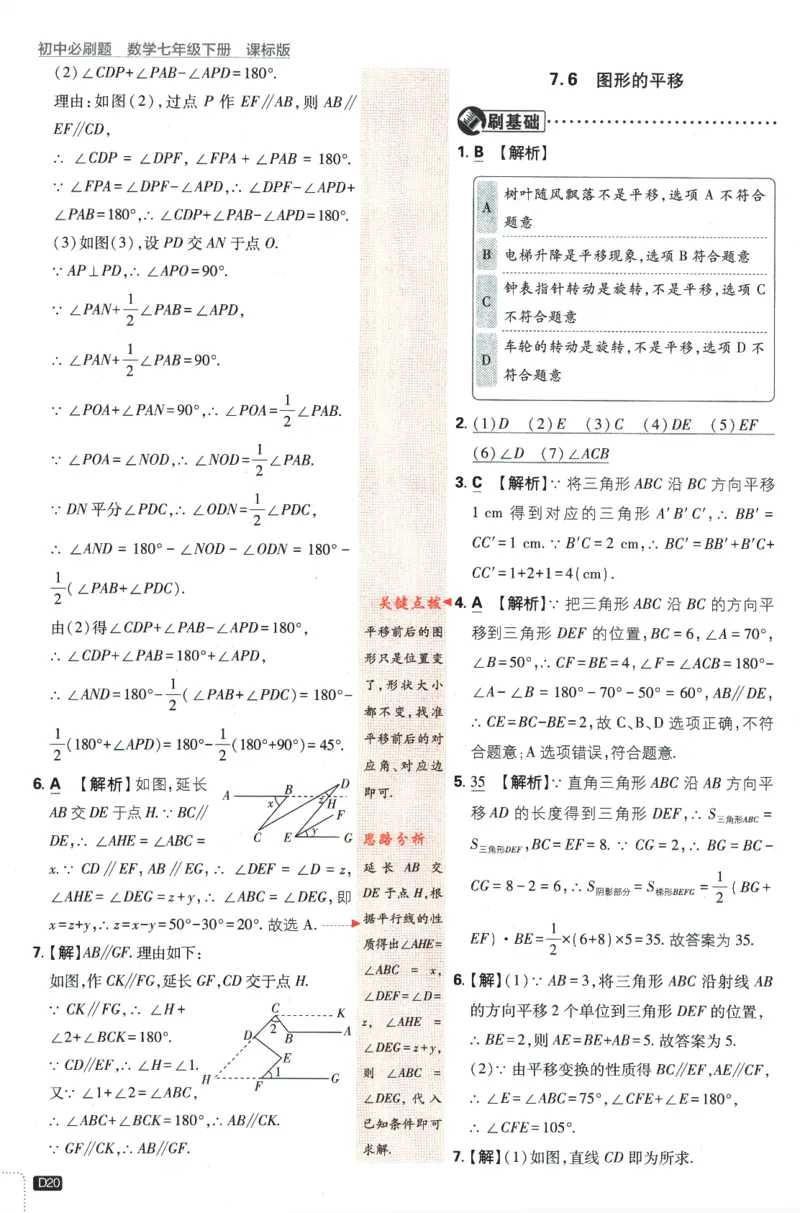 初中必刷题 数学七年级下册 课标版
(2)∠CDP+∠PAB-∠APD=180°.
理由:如图(2),过点 P 作 EF∥AB,则 AB∥
EF∥CD,
∴ ∠CDP = ∠DPF, ∠FPA + ∠PAB = 180°.
∵ ∠FPA=∠DPF-∠APD,∴ ∠DPF-∠APD+
∠PAB=180°,∴ ∠CDP+∠PAB-∠APD=180°.
(3)如图(3),设 PD 交 AN 于点 O.
∵ AP⊥PD,∴ ∠APO=90°.
∵ ∠PAN+1/2∠PAB=∠APD,
∴ ∠PAN+1/2∠PAB=90°.
∵ ∠POA+∠PAN=90°,∴ ∠POA=1/2∠PAB.
∵ ∠POA=∠NOD,∴ ∠NOD=1/2∠PAB.
∵ DN 平分∠PDC,∴ ∠ODN=1/2∠PDC,
∴ ∠AND = 180° - ∠NOD - ∠ODN = 180° -
1/2(∠PAB+∠PDC).
由(2)得∠CDP+∠PAB-∠APD=180°,
∴ ∠CDP+∠PAB=180°+∠APD,
∴ ∠AND=180°-1/2(∠PAB+∠PDC)= 180°-
1/2(180°+∠APD)=180°-1/2(180°+90°)=45°.
6. A 【解析】如图,延长
AB 交 DE 于点 H.∵ BC∥
DE,∴ ∠AHE = ∠ABC =
x.∵ CD∥EF, AB∥EG,∴ ∠DEF = ∠D = z,
∠AHE= ∠DEG=z+y,∴ ∠ABC = ∠DEG,即
x=z+y,∴ z=x-y=50°-30°=20°. 故选 A.
A B D
x z H
F
C E y G
7.【解】AB∥GF. 理由如下:
如图,作 CK∥FG,延长 GF,CD 交于点 H.
∵ CK∥FG,∴ ∠H+
∠2+∠BCK=180°.
∵ CD∥EF,∴ ∠H=∠1.
又∵ ∠1+∠2=∠ABC,
∴ ∠ABC+∠BCK=180°,∴ AB∥CK.
∵ GF∥CK,∴ AB∥GF.
C K
2
D B A
E
H 1 G
F
D20
关键点拨
平移前后的图
形只是位置变
了,形状大小
都不变,找准
平移前后的对
应角、对应边
即可.
思路分析
延长 AB 交
DE 于点 H,根
据平行线的性
质得出∠AHE=
∠ABC = x,
∠DEF=∠D=
z, ∠AHE =
∠DEG=z+y,
则 ∠ABC =
∠DEG, 代入
已知条件即可
求解.
7.6 图形的平移
刷基础
1. B 【解析】
A 树叶随风飘落不是平移,选项 A 不符合
题意
B 电梯升降是平移现象,选项 B 符合题意
C 钟表指针转动是旋转,不是平移,选项 C
不符合题意
D 车轮的转动是旋转,不是平移,选项 D 不
符合题意
2. (1)D (2)E (3)C (4)DE (5)EF
(6)∠D (7)∠ACB
3. C 【解析】∵ 将三角形 ABC 沿 BC 方向平移
1 cm 得到对应的三角形 A'B'C',∴ BB' =
CC'=1 cm.∵ B'C=2 cm,∴ BC'=BB'+B'C+
CC'=1+2+1=4(cm).
4. A 【解析】∵ 把三角形 ABC 沿 BC 的方向平
移到三角形 DEF 的位置,BC=6,∠A=70°,
∠B=50°,∴ CF=BE=4,∠F=∠ACB=180°-
∠A-∠B = 180°-70°-50° = 60°, AB∥DE,
∴ CE=BC-BE=2,故 C、B、D 选项正确,不符
合题意;A 选项错误,符合题意.
5. 35 【解析】∵ 直角三角形 ABC 沿 AB 方向平
移 AD 的长度得到三角形 DEF,∴ S三角形ABC =
S三角形DEF,BC=EF=8. ∵ CG=2,∴ BG=BC-
CG=8-2=6,∴ S阴影部分=S梯形BEFG=1/2(BG+
EF)·BE=1/2×(6+8)×5=35. 故答案为 35.
6.【解】(1)∵ AB=3,将三角形 ABC 沿射线 AB
的方向平移 2 个单位到三角形 DEF 的位置,
∴ BE=2,则 AE=BE+AB=5. 故答案为 5.
(2)∵ 由平移变换的性质得 BC∥EF,AE∥CF,
∴ ∠E=∠ABC=75°,∠CFE+∠E=180°,
∴ ∠CFE=105°.
7.【解】(1)如图,直线 CD 即为所求.